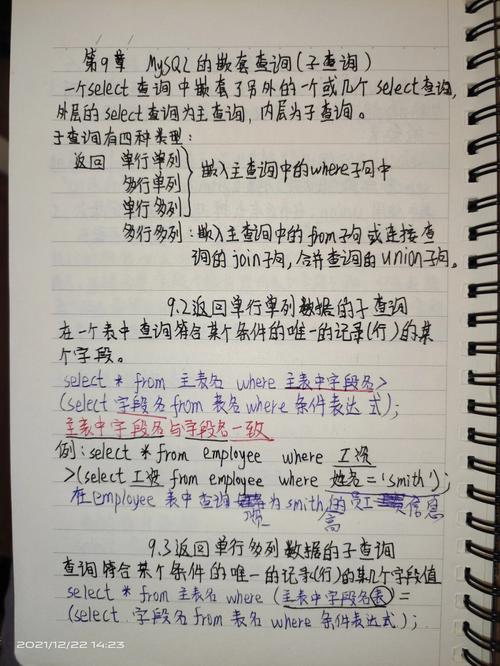 第9章 MySQL的嵌套查询(子查询)
一个select查询中嵌套了另外的一个或几个select查询,
外层的select查询为主查询,内层为子查询。
子查询有四种类型:
返回 单行单列
多行单列
单行多列
嵌入主查询中的where子句中
多行多列:嵌入主查询中的from子句或连接查
询的join子句,合并查询的union子句。
9.2返回单行单列数据的子查询
在一个表中查询符合某个条件的唯一的记录(行)的某
个字段。
select * from 主表名 where 主表中字段名>
(select 字段名 from 表名 where 条件表达式);
主表中字段名与字段名一致
例:select * from employee where 工资
>(select 工资 from employee where 姓名='smith');
在employee表中查询 为smith 的员工 信息
高
9.3返回单行多列数据的子查询
查询符合某个条件的唯一的记录(行)的某几个字段值
select * from 主表名 where (主表中字段名表)=
(select 字段名 from 表名 where 条件表达式);
2021/12/22 14:23